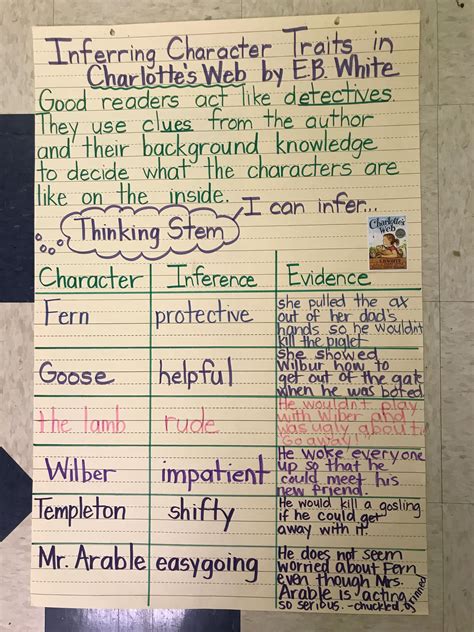 Inferring Character Traits in
Charlotte's Web by E.B. White
Good readers act like detectives.
They use clues from the author
and their background knowledge
to decide what the characters are
like on the inside.
I can infer...
Thinking Stem
Charlotte's
Web
Character Inference Evidence
Fern protective
she pulled the ax
out of her dad's
hands so he wouldn't
kill the piglet
Goose helpful
she showed
Wilbur how to
get out of the gate
when he was bored.
the lamb rude
He wouldn't play
with Wilber and
was ugly about it
"Go away!"
Wilber impatient
He woke everyone
up so that he
could meet his
new friend.
Templeton shifty
He would kill a gosling
if he could get
away with it.
Mr. Arable easygoing
He does not seem
worried about Fern
even though Mrs.
Arable is acting
so serious. -chuckled, grinned